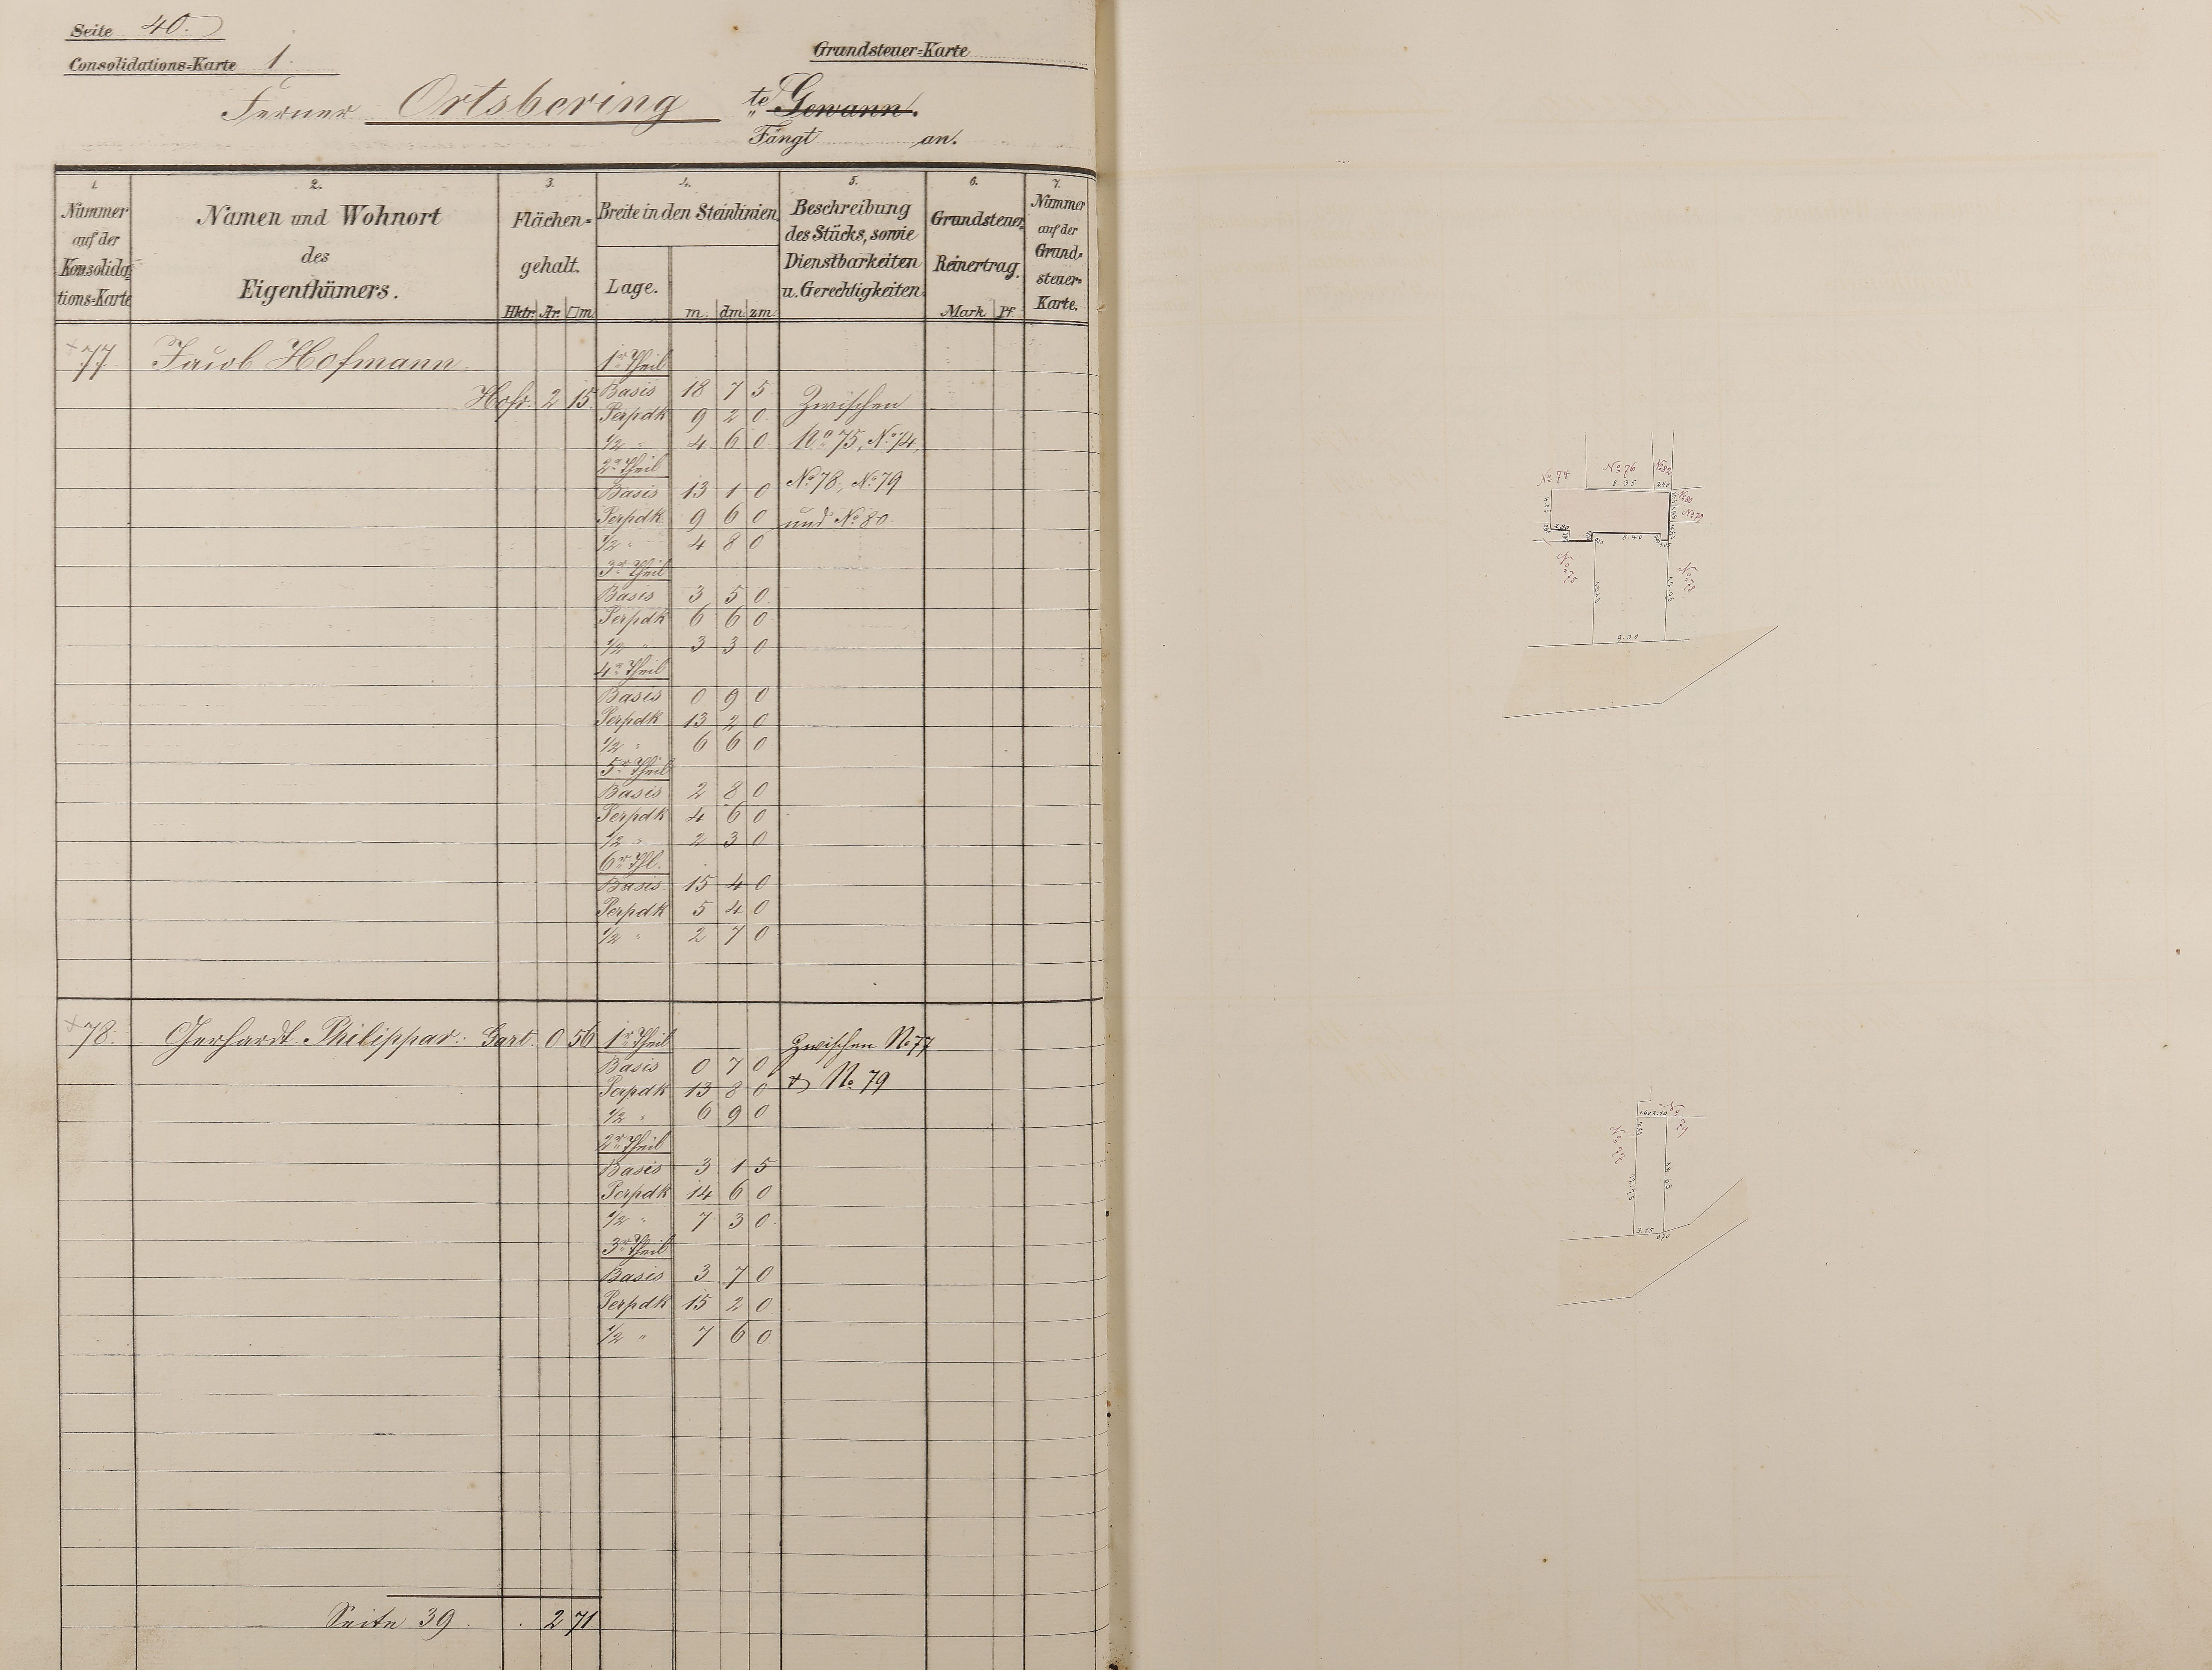 Seite 40.
Consolidations=Karte 1.
Grundsteuer=Karte
Ferner Ortsbering te Gewann.
Fängt an.
1. 2. 3. 4. 5. 6. 7.
Nummer auf der Konsolidations=Karte
Namen und Wohnort des Eigenthümers.
Flächen=gehalt.
Hktr. Ar. □m.
Breite in den Steinlinien.
Lage. m. dm. zm.
Beschreibung des Stücks, sowie Dienstbarkeiten u. Gerechtigkeiten.
Grundsteuer Reinertrag.
Mark Pf.
Nummer auf der Grund=steuer=Karte.
77 Jacob Hofmann 1r Theil
Hofr. 2 15 Basis 18 7 5 Zwischen
Perpdk 9 2 0
1/2 " 4 6 0 No 75, No 74,
2r Theil
Basis 13 1 0 No 78, No 79
Perpdk 9 6 0 und No 80
1/2 " 4 8 0
3r Theil
Basis 3 5 0
Perpdk 6 6 0
1/2 " 3 3 0
4r Theil
Basis 0 9 0
Perpdk 13 2 0
1/2 " 6 6 0
5r Theil
Basis 2 8 0
Perpdk 4 6 0
1/2 " 2 3 0
6r Thl.
Basis 15 4 0
Perpdk 5 4 0
1/2 " 2 7 0
78. Gerhardt Philippar: Gart. 0 56 1r Theil Zwischen No 77
Basis 0 7 0 & No 79
Perpdk 13 8 0
1/2 " 6 9 0
2r Theil
Basis 3 1 5
Perpdk 14 6 0
1/2 " 7 3 0
3r Theil
Basis 3 7 0
Perpdk 15 2 0
1/2 " 7 6 0
Seite 39 . . 2 71
No 74 No 76 No 82
8.35 2.40
No 80
No 79
2.80 8.40
No 75 No 78
9.30
1.60 2.10 No 79
No 77
14.65
3.15
0.70